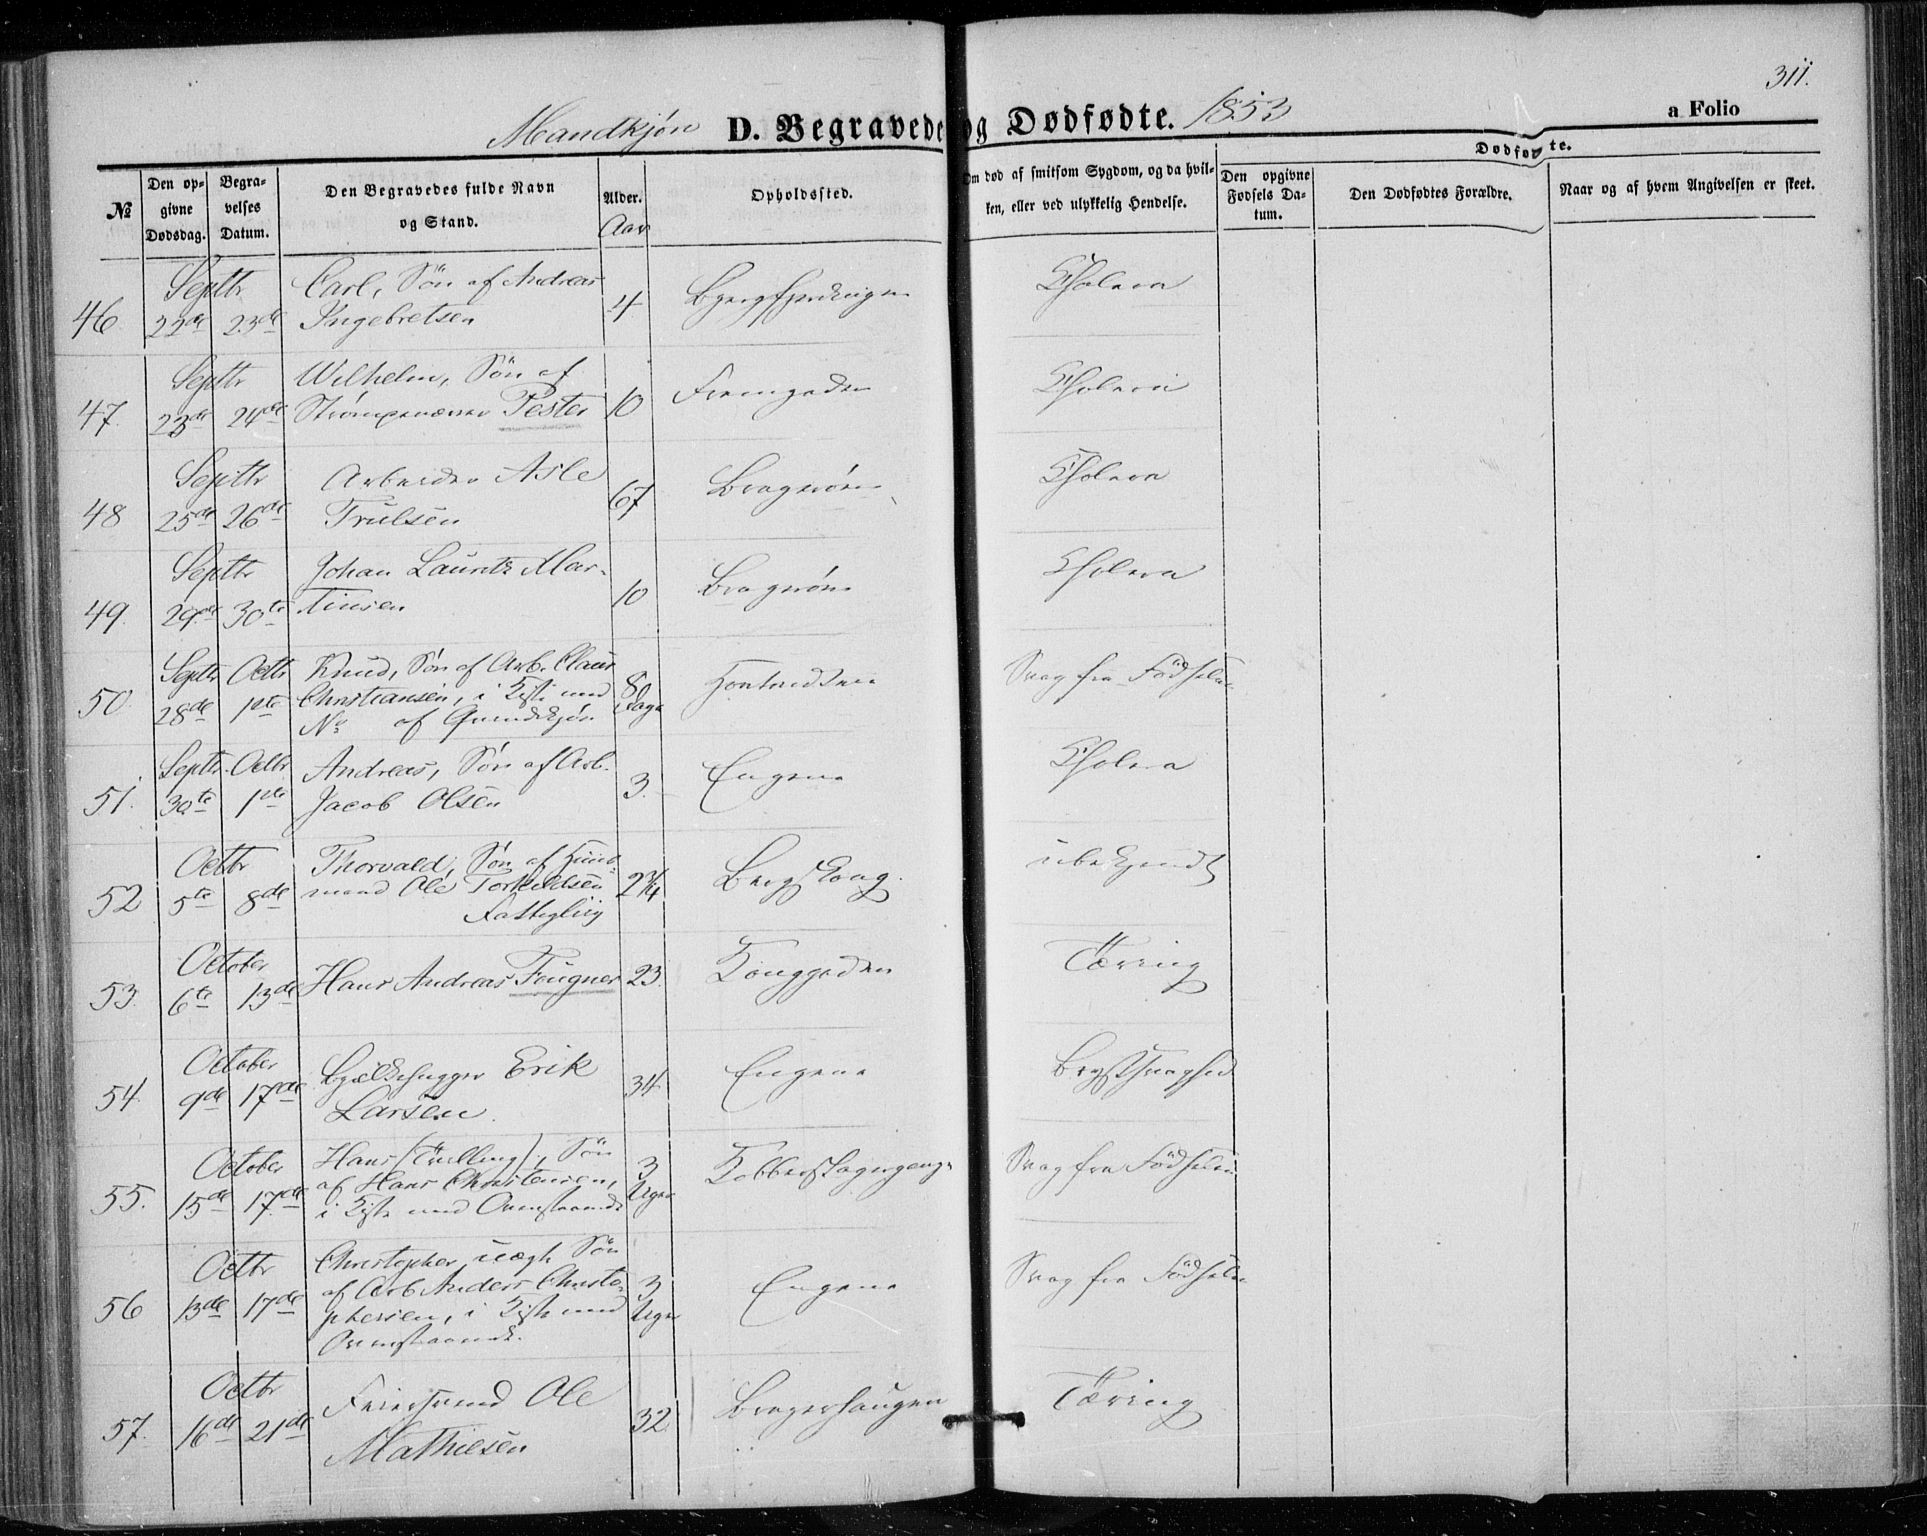 311.
Mandkjøn D. Begravede og Dødfødte. 1853 a Folio
Dødfødte.
No
Den opgivne Dødsdag.
Begravelses Datum.
Den Begravedes fulde Navn og Stand.
Alder. Aar
Opholdssted.
Om død af smitsom Sygdom, og da hvilken, eller ved ulykkelig Hendelse.
Den opgivne Fødsels Datum.
Den Dødfødtes Forældre.
Naar og af hvem Angivelsen er skeet.
Septbr Carl, Søn af Andreas
46. 22de 23de Ingebretsen 4 Cholera
Septbr Wilhelm, Søn af
47. 23de 24de Pester 10 Fremgaden Cholera
Septbr Arbeider Asle
48 25de 26de Trulsen 67 Bragernæs Cholera
Septbr Johan Lauritz Mar-
49. 29de 30te tinsen 10 Bragernæs Cholera
Septbr Octbr Knud, Søn af Arb. Claus
50. 28de 1ste Christiansen, i Kiste med 8 Dage Svag fra Fødselen
No af Qvindekjøn
Septbr. Octbr Andreas, Søn af Arb.
51. 30te 1ste Jacob Olsen 3. Engene Cholera
Octbr Thorvald, Søn af Huus-
52 5te 8de mand Ole Torkildsen 2 3/4 Bergskoug. ubekjendt
Fattiglig
October
53. 6te 13de Hans Andreas Fougner 23. Konggaden Tæring
October Bjælkehugger Erik
54. 9de 17de Larsen. 34 Engene Brystsvaghed
October Hans (Trilling), Søn
55. 15de 17de af Hans Christensen, 3 Uger Svag fra Fødselen
i Kiste med Ovenstaaende
Octbr Christopher uægte Søn
56 13de 17de af Arb Anders Christo- 3 Uger Engene Svag fra Fødselen
phersen, i Kiste med
Ovenstaaende.
Octbr Feiersvend Ole
57. 16de 21de Mathiesen 32 Bragerhaugen Tæring